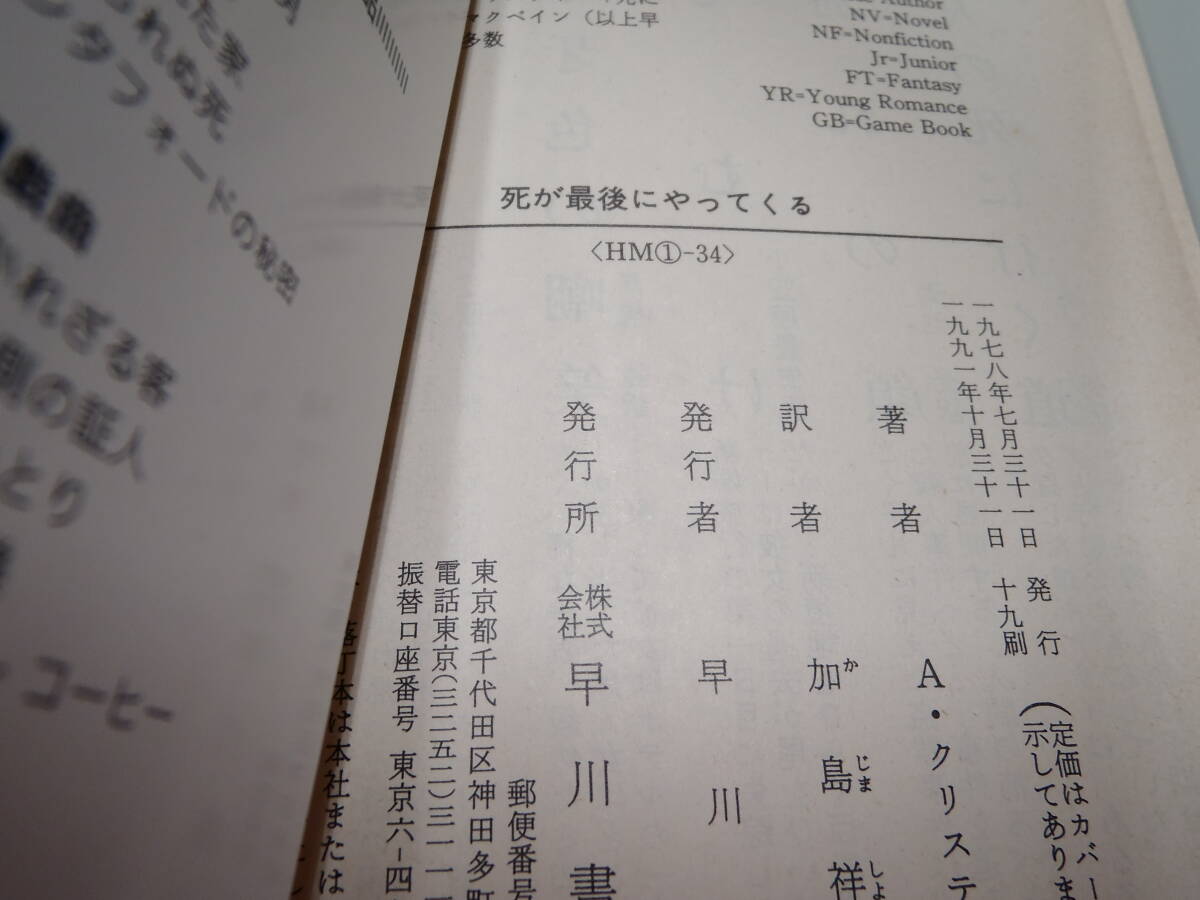 マクベイン（以上早
多数
NV=Novel
NF=Nonfiction
Jr=Junior
FT=Fantasy
YR=Young Romance
GB=Game Book
死が最後にやってくる
〈HM①-34〉
一九七八年七月三十一日 発行
一九九一年十月三十一日 十九刷
（定価はカバー
示してありま
著者 A・クリステ
訳者 加島祥
かじましよ
発行者 早川
発行所 株式会社 早川書
郵便番号
東京都千代田区神田多町
電話東京（三二五二）三一一
振替口座番号 東京六-四
落丁本は本社または
た家
られぬ死
タフォードの秘密
れざる客
側の証人
とり
コーヒー